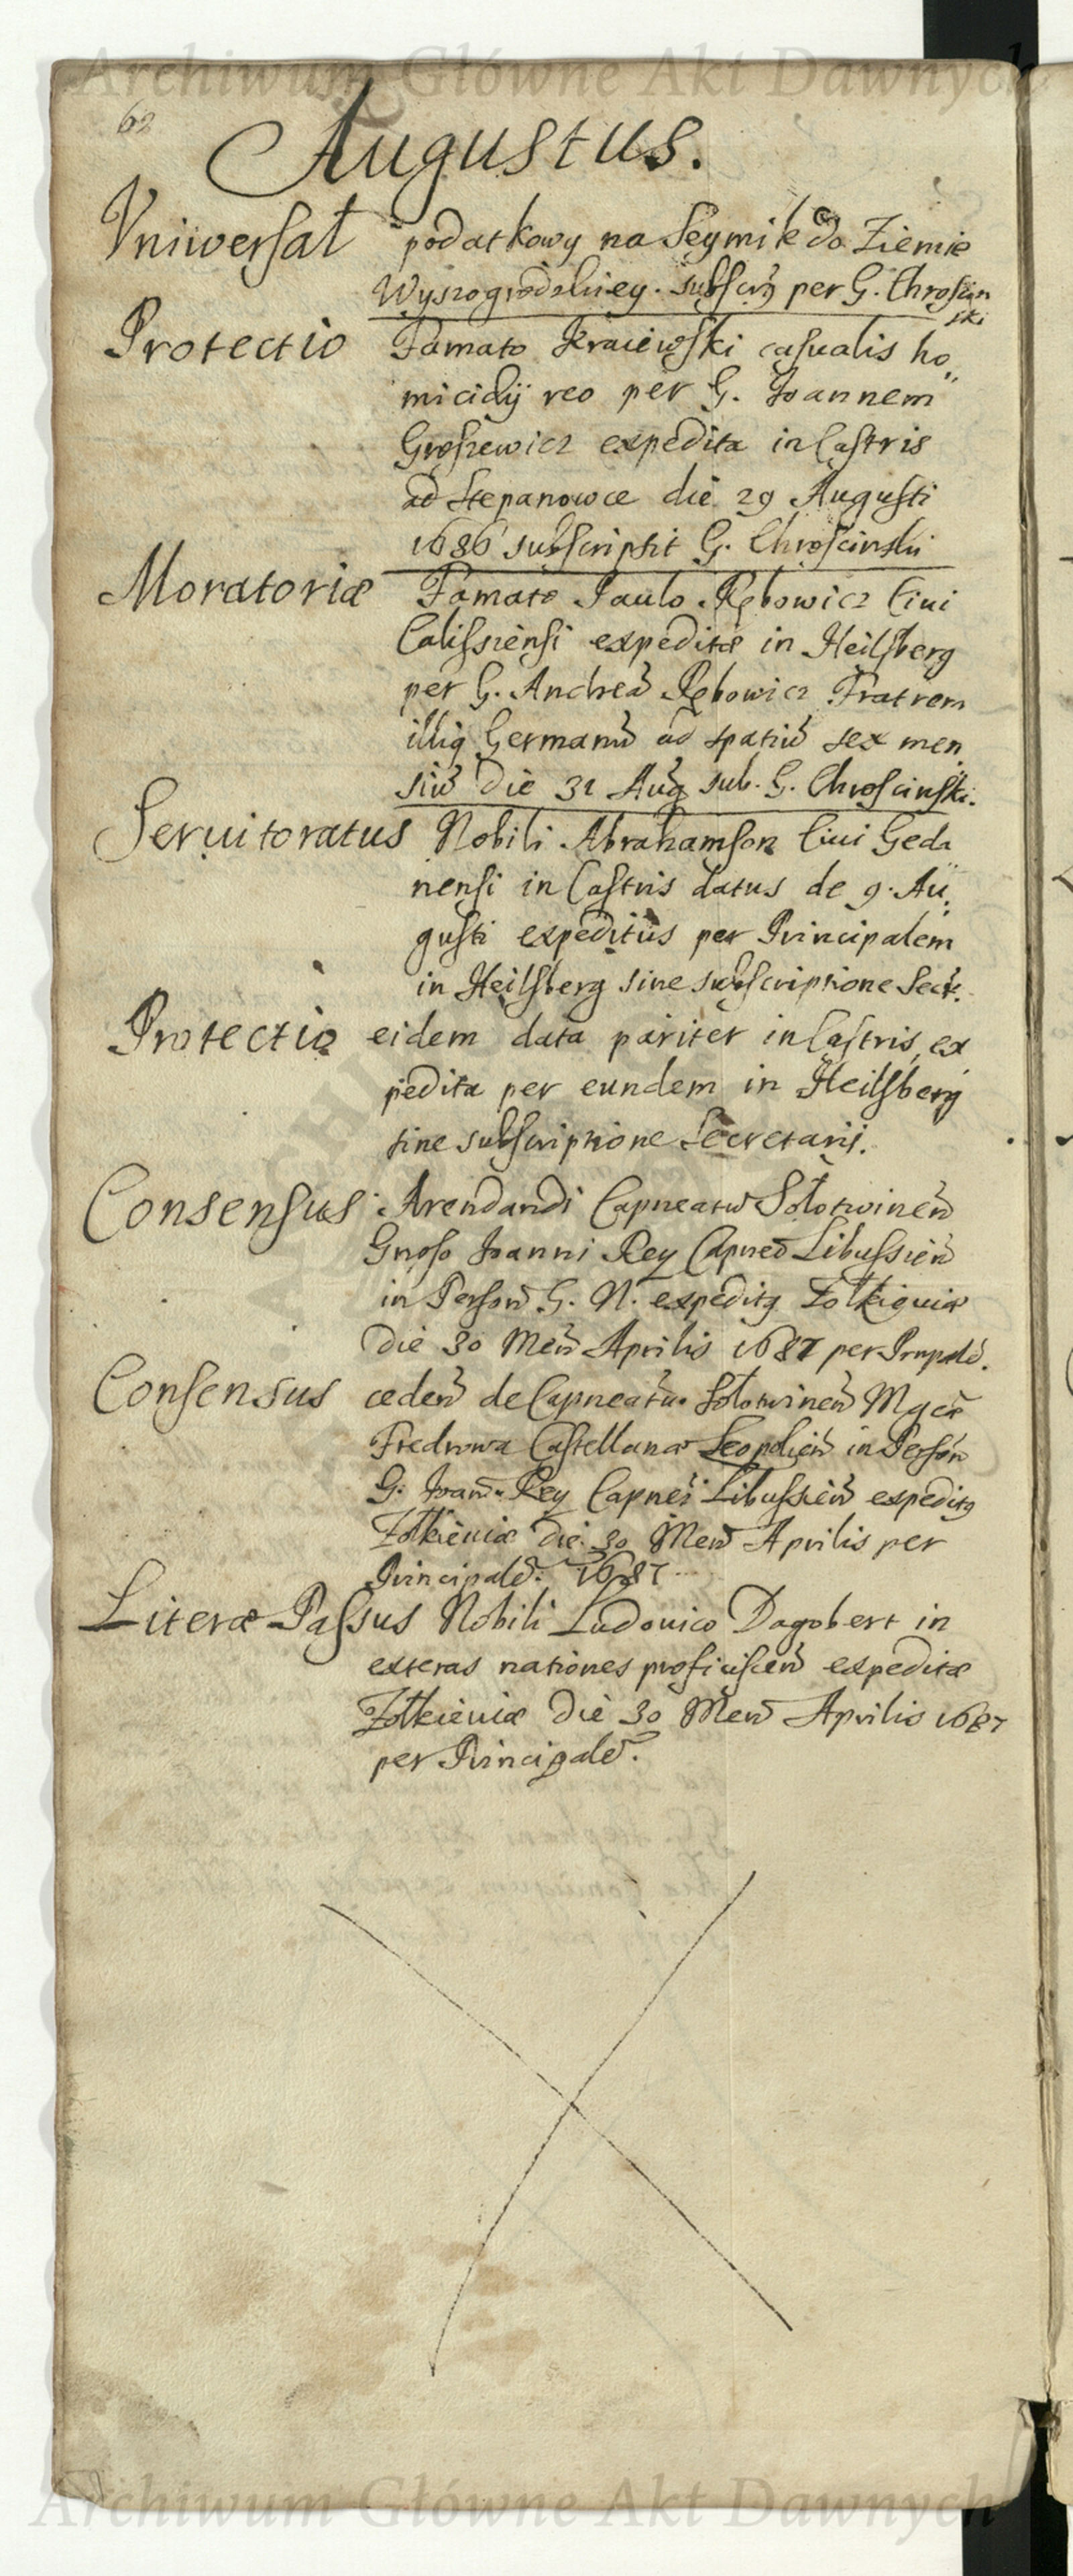 Archiwum Główne Akt Dawnych
62
Augustus.
Vniwersał podatkowy na Seymik do Ziemie
Wyszogrodzkiey. subscrip per G. Chroscin
ski
Protectio Famato Kraiewski casualis ho„
micidij reo per G. Joannem
Groszewicz expedita in Castris
ad Stepanowce die 29 Augusti
1686 subscripsit G. Chroscinski
Moratoriæ Famato Paulo Rębowicz Ciui
Calissiensi expeditæ in Heilsberg
per G. Andreā Rębowicz Fratrem
illiq Germanū ad spatiū sex men„
siū die 31 Aug sub. G. Chroscinski.
Seruitoratus Nobili Abrahamson Ciui Geda„
nensi in Castris datus de 9. Au„
gusti expeditus per Principalem
in Heilsberg sine subscriptione Secr.
Protectio eidem data pariter in Castris, ex
pedita per eundem in Heilsberg
sine subscriptione Secretarij.
Consensus Arendandi Capneatu Sołotwineñ
Gnoso Joanni Rey Capneo Libussieñ
in Persoñ G. N. expeditq Zołkieuiæ
die 30 Meñ Aprilis 1687 per
Consensus cedeñ de Capneatu Sołotwineñ
Fredrowa Castellana Leopolieñ in Persoñ
G. Joañ Rey Capnei Libussieñ expeditq
Zołkieuiæ die 30 Meñ Aprilis per
Principalē. 1687
Literæ Passus Nobili Ludouico Dagobert in
exteras nationes proficisceñ expeditæ
Zołkieuiæ die 30 Meñ Aprilis 1687
per Principalē.
Archiwum Główne Akt Dawnych